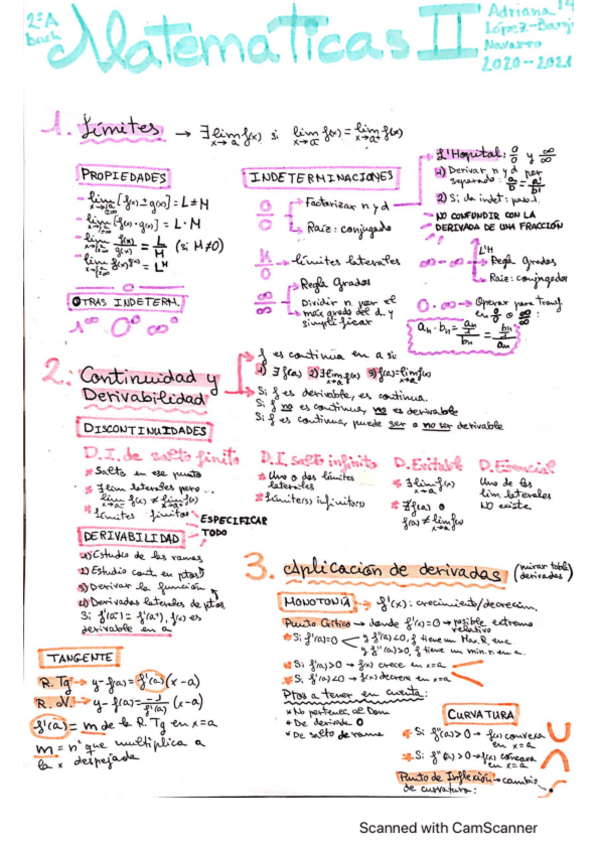 2ºA
bach
Matemáticas II
Adriana
López-Barj
Navarro
2020-2021
1. Límites → ∃ lim f(x) si lim f(x) = lim f(x)
x→a x→a⁻ x→a⁺
PROPIEDADES
INDETERMINACIONES
L'Hopital: 0/0 y ∞/∞
1) Derivar n y d por
separado:
2) Si da indet: paso 1.
NO CONFUNDIR CON LA
DERIVADA DE UNA FRACCIÓN
- lim [f(x) ± g(x)] = L ± M
- lim [f(x) · g(x)] = L · M
- lim f(x)/g(x) = L/M (si M≠0)
- lim f(x)^g(x) = L^M
0/0
Factorizar n y d
Raíz: conjugado
K/0 → límites laterales
∞/∞
Regla Grados
Dividir n por el
más grado del d. y
simplificar
∞-∞
L'H
Regla Grados
Raíz: conjugados
0·∞ → Operar para transf.
en 0/0 o ∞/∞:
OTRAS INDETERM.
1^∞ 0^0 ∞^0
2. Continuidad y
Derivabilidad
f es continua en a si
1) ∃ f(a) 2) ∃ lim f(x) 3) f(a) = lim f(x)
x→a x→a
Si f es derivable, es continua.
Si f no es continua, no es derivable
Si f es continua, puede ser o no ser derivable
DISCONTINUIDADES
D. I. de salto finito
* Salto en ese punto
* ∃ lim laterales pero..
lim f(x) ≠ lim f(x)
x→a⁻ x→a⁺
* Límites finitos
D. I. salto infinito
* Uno o dos límites
laterales
* Límite(s) infinito(s)
D. Evitable
* ∃ lim f(x)
x→a
* ∄ f(a) o
f(a) ≠ lim f(x)
x→a
D. Esencial
Uno de los
lim. laterales
NO existe
ESPECIFICAR
TODO
DERIVABILIDAD
1) Estudio de las ramas
2) Estudio cont. en ptos
3) Derivar la función
4) Derivadas laterales de ptos
Si f'(a⁻) = f'(a⁺), f(x) es
derivable en a
TANGENTE
R. Tg → y - f(a) = f'(a) (x - a)
R. N. → y - f(a) = -1/f'(a) (x - a)
f'(a) = m de la R. Tg en x = a
m = nº que multiplica a
la x despejada
3. Aplicación de derivadas (mirar tabla
derivadas)
MONOTONÍA → f'(x): crecimiento/decrecim.
Punto Crítico → donde f'(a) = 0 → posible extremo
relativo
* Si f'(a) = 0
y f''(a) < 0, f tiene un Max. R. en a
y f''(a) > 0, f tiene un min. r. en a.
* Si f'(a) > 0 → f(x) crece en x=a
* Si f'(a) < 0 → f(x) decrece en x=a
Ptos a tener en cuenta:
* No pertenece al Dom
* De derivada 0
* De salto de rama
CURVATURA
* Si f''(a) > 0 → f(x) convexa
en x=a
* Si f''(a) > 0 → f(x) cóncava
en x=a
Punto de Inflexión → cambio
de curvatura:
Scanned with CamScanner